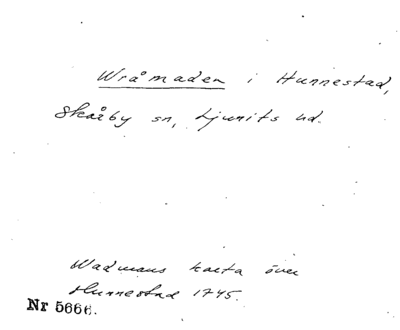 Wråmaden i Hunnestad,
Skårby sn, Ljunits hd.
Wadmans karta över
Hunnestad 1745.
Nr 5666.